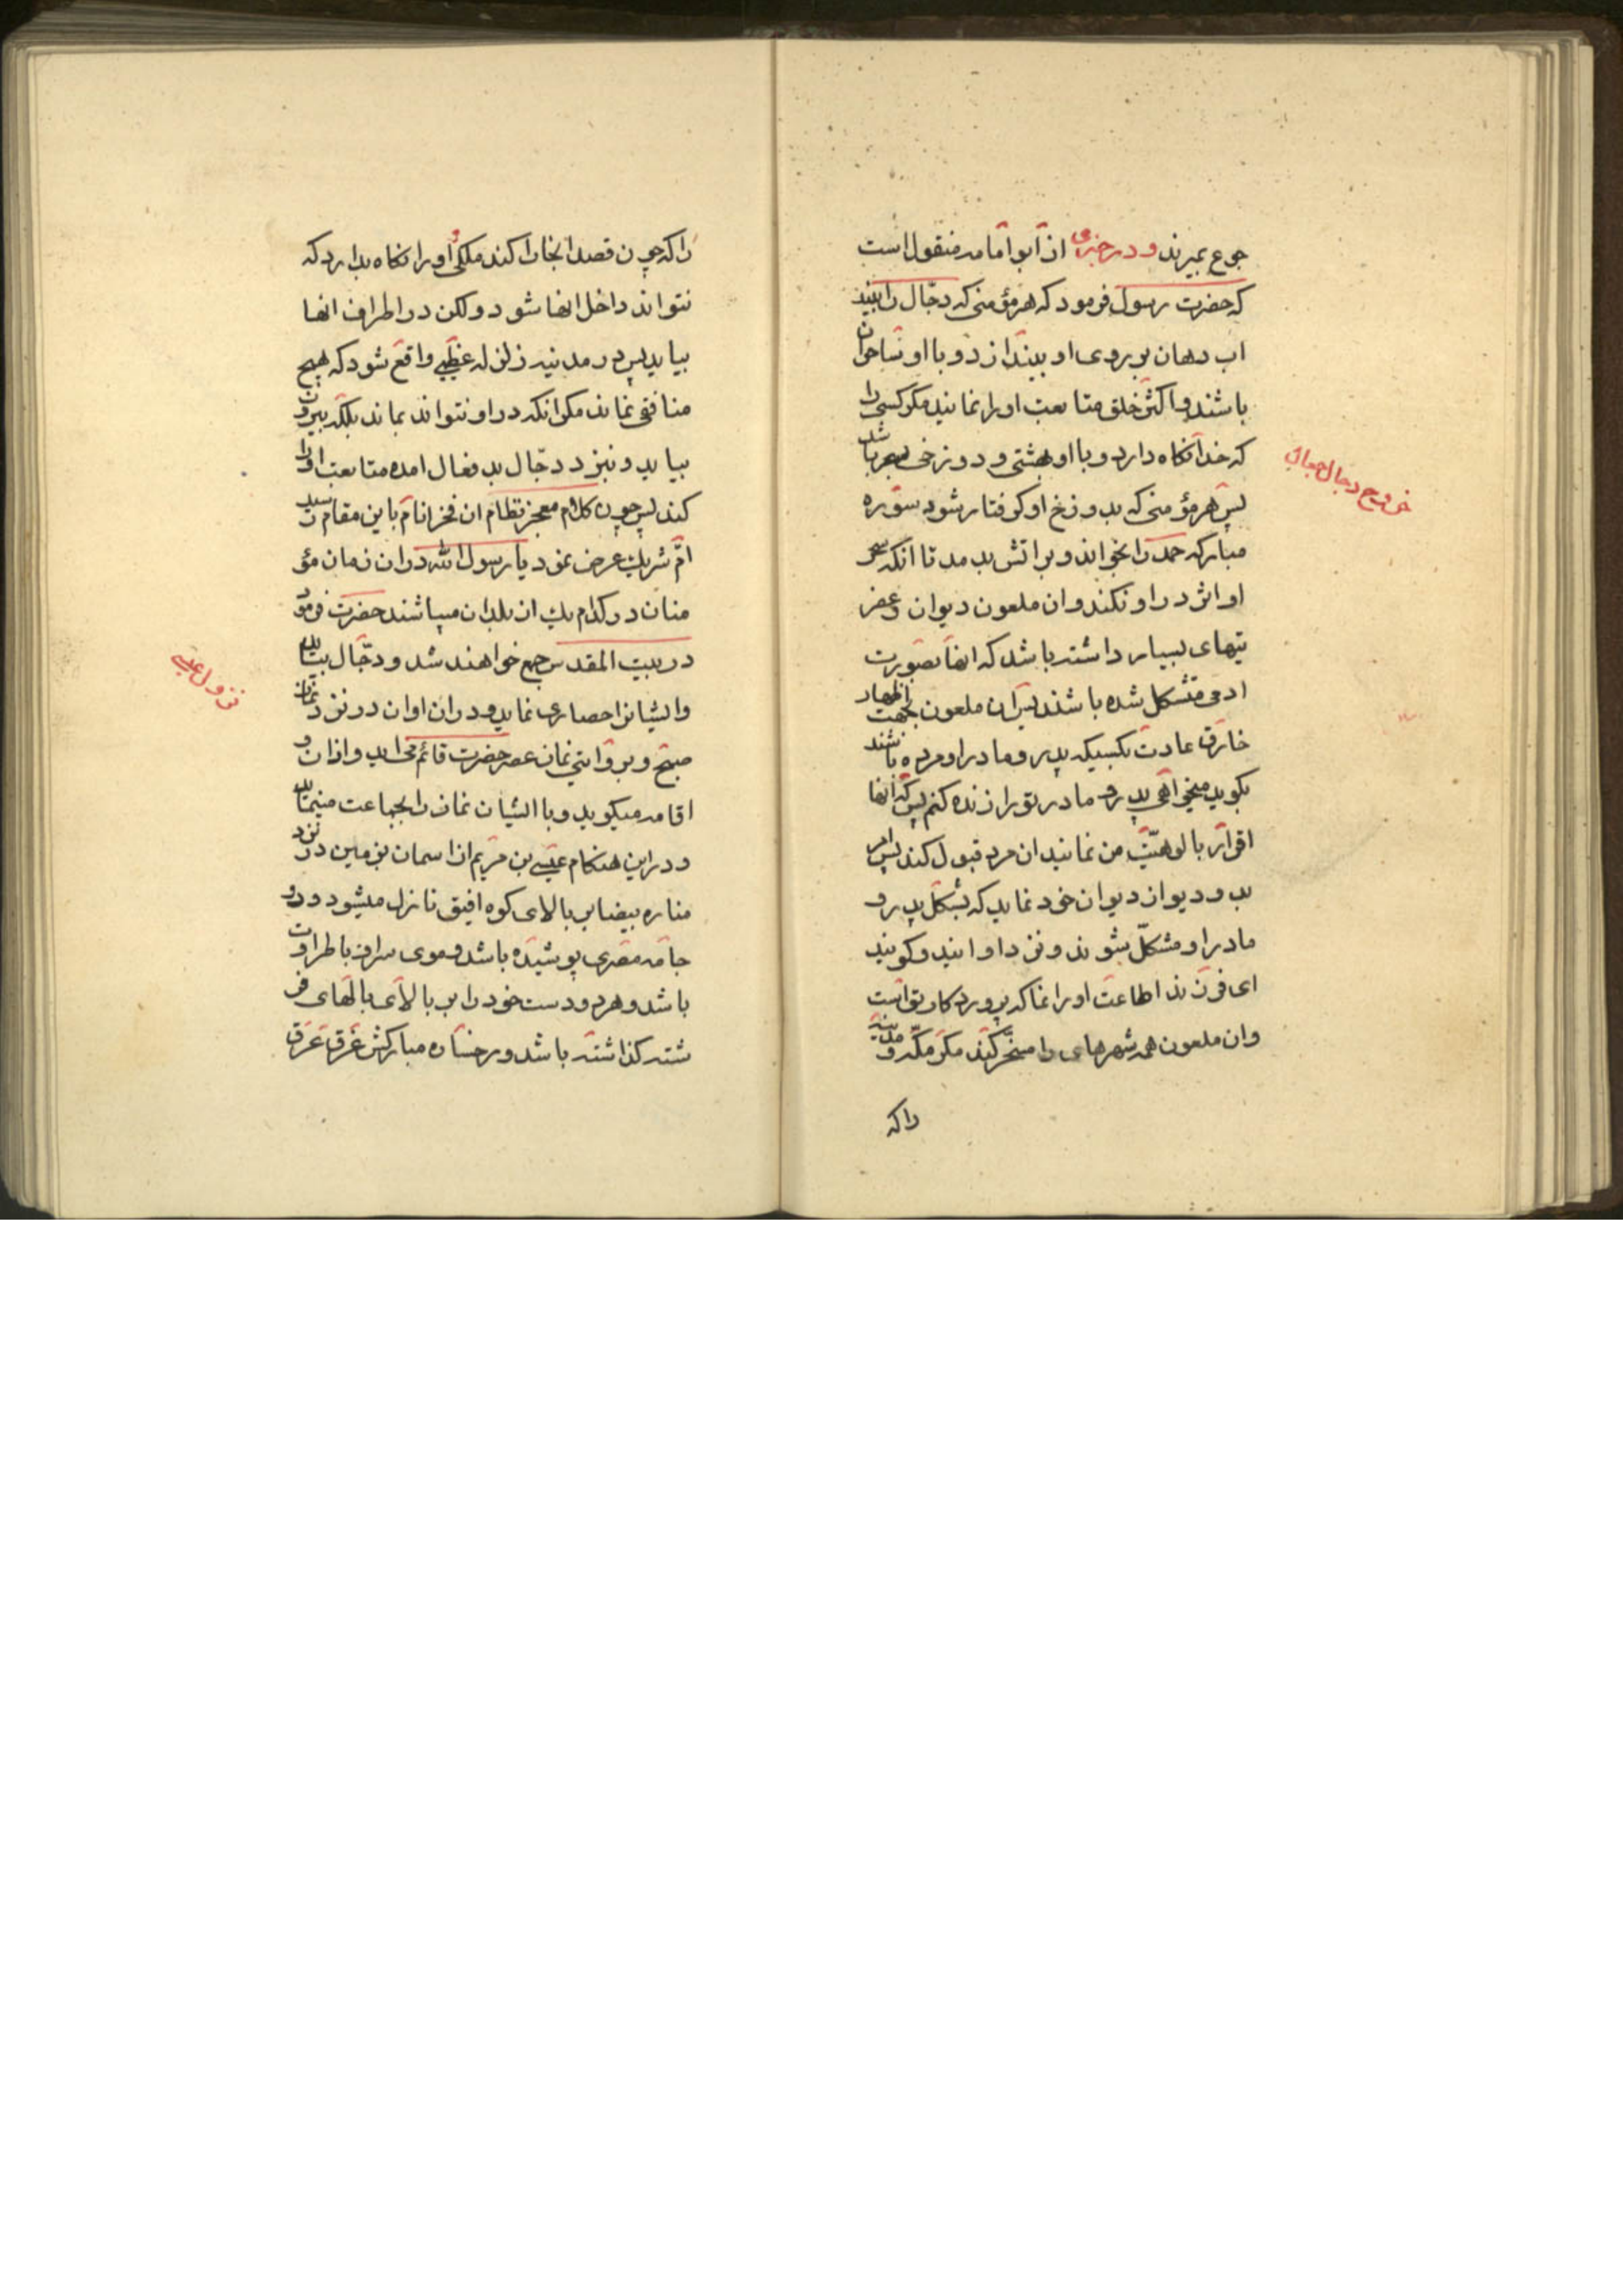 جوع بمیرند و در خبری از ابو امامه منقول است
که حضرت رسول فرمود که هر مؤمنی که دجّال را ببیند
اب دهان بر روی او بیندازد و با او ساحران
باشند و اکثر خلق متابعت او را نمایند مکر کسی را
که خدا نکاه دارد و با او بهشتی و دوزخی سحر باشد
پس هر مؤمنی که بدوزخ او کرفتار شود سوره
مبارکه حمد را بخواند و بر اتش بدمد تا انکه سحر
او اثر در او نکند و ان ملعون دیوان و عفر
یتهای بسیار داشته باشد که انها بصورت
ادمی متشکل شده باشند پس ان ملعون بجهت اظهار
خارق عادت بکسیکه پدر و مادر او مرده باشند
بکوید میخواهی پدر و مادر تو را زنده کنم پس که انها
اقرار بالوهیّت من نمایند ان مرد قبول کند پس امر
بدو دیو از دیوان خود نماید که بشکل پدر و
مادر او مشکّل شوند و نزد او ایند و کویند
ای فرزند اطاعت او را نما که پروردکار تو است
و ان ملعون همه شهرهای را مسخّر کند مکر مکّه و مدینه
را که
خروج دجال
را که چون قصد انجا را کند ملکی او را نکاه بدارد که
نتواند داخل انها شود ولکن در اطراف انها
بیاید پس در مدنیه زلزله عظیمی واقع شود که هیچ
منافقی نماند مکر انکه در او نتواند بماند بلکه بیرون
بیاید و نیز د دجّال بد فعال امده متابعت او را
کند پس چون کلام معجز نظام ان فخر انام باین مقام رسید
امّ شریک عرض نمود یا رسول الله در ان زمان مؤ
منان در کدام یک از بلدان میباشند حضرت فرمود
در بیت المقدس جمع خواهند شد و دجّال بیاید
و ایشانرا حصاری نماید و در ان اوان در نزد نماز
صبح و بروایتی نماز عصر حضرت قائم می اید و اذان و
اقامه میکوید و با ایشان نماز را بجماعت مینماید
و در این هنکام عیسی بن مریم از اسمان بزمین در نزد
مناره بیضا بر بالای کوه افیق نازل میشود و دو
جامه مصری پوشیده باشد و موی سرا و با طراوت
باشد و هر دو دست خود را بر بالای بالهای فر
شته کذاشته باشد و رخساره مبارکش غرق عرق
نزول عیسی